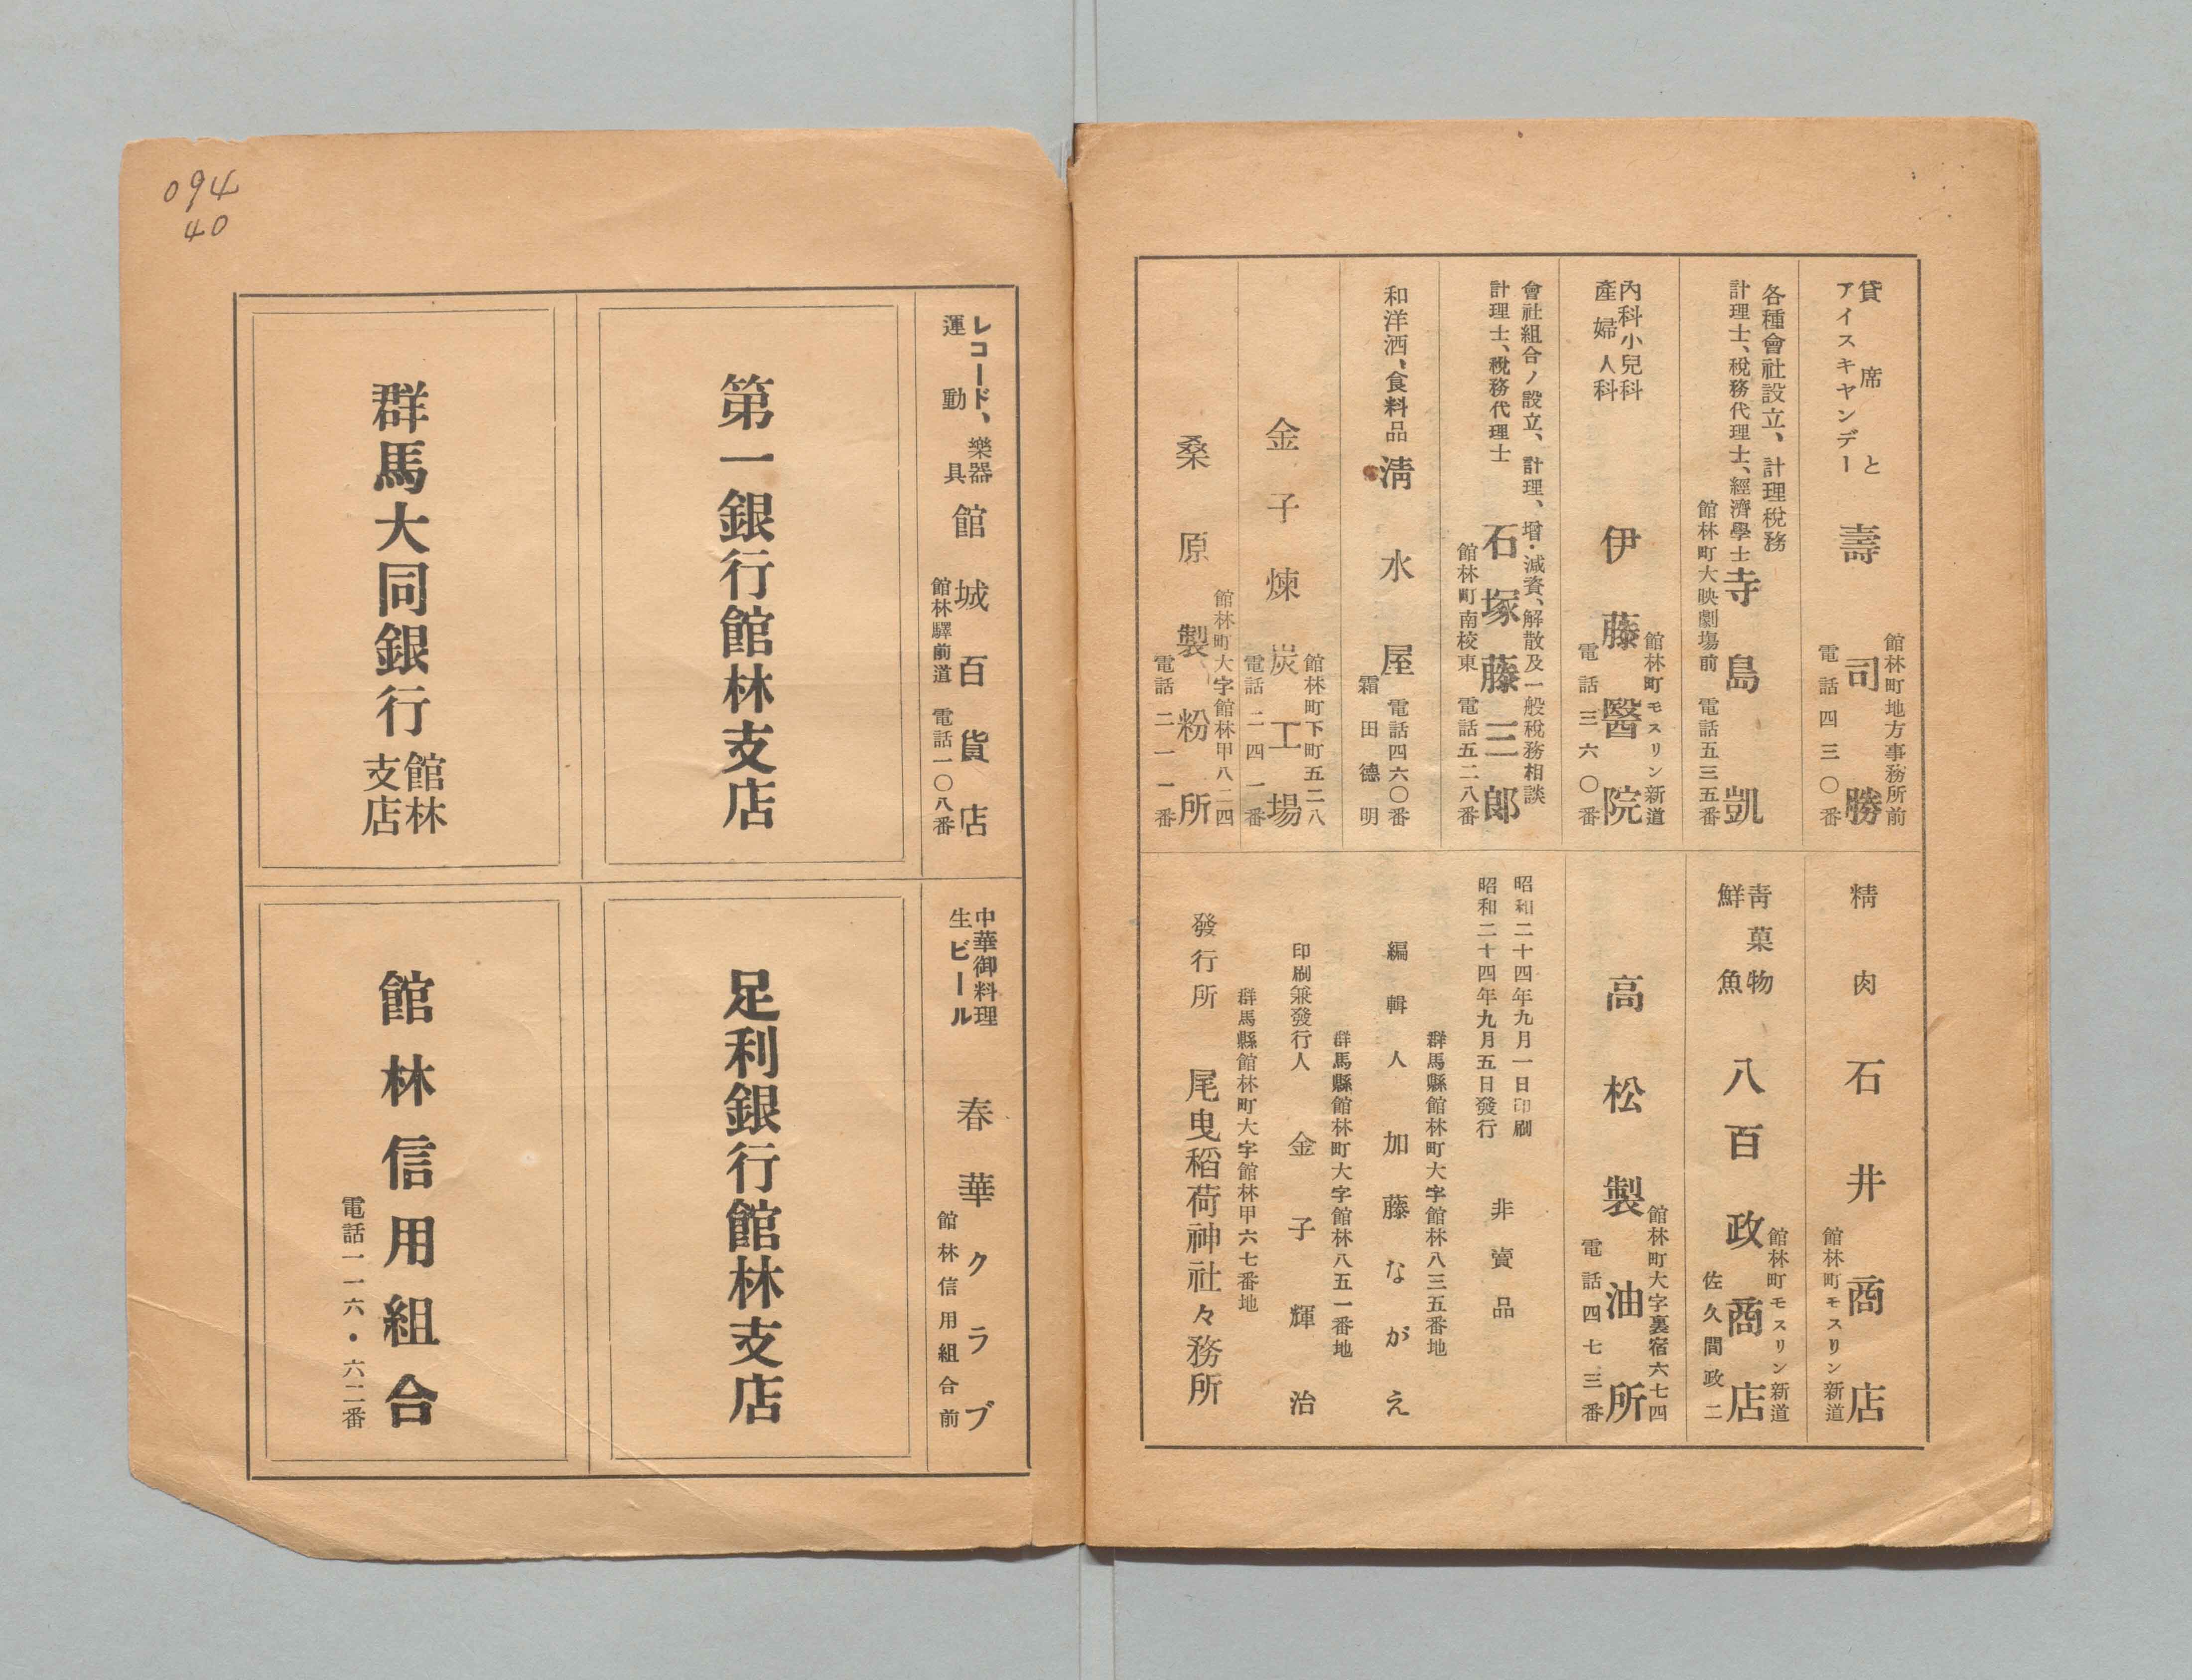 貸席と
アイスキヤンデー
壽司勝
館林町地方事務所前
電話四三〇番
各種會社設立、計理税務
計理士、税務代理士、經濟學士
寺島凱
館林町大映劇場前 電話五三五番
內科小兒科
產婦人科
伊藤醫院
館林町モスリン新道
電話三六〇番
會社組合ノ設立、計理、增・減資、解散及一般税務相談
計理士、税務代理士
石塚藤三郎
館林町南校東 電話五二八番
和洋酒、食料品
淸水屋
電話四六〇番
霜田德明
金子煉炭工場
館林町下町五二八
電話二四一番
桑原製粉所
館林町大字館林甲八二四
電話二一一番
精肉
石井商店
館林町モスリン新道
靑菓物
鮮魚
八百政商店
館林町モスリン新道
佐久間政二
高松製油所
館林町大字裏宿六七四
電話四七三番
昭和二十四年九月一日印刷
昭和二十四年九月五日發行
非賣品
群馬縣館林町大字館林八三五番地
編輯人 加藤ながえ
群馬縣館林町大字館林八五一番地
印刷兼發行人 金子輝治
群馬縣館林町大字館林甲六七番地
發行所 尾曳稻荷神社々務所
094
40
レコード、樂器
運動具
館城百貨店
館林驛前道 電話一〇八番
第一銀行館林支店
群馬大同銀行館林支店
中華御料理
生ビール
春華クラブ
館林信用組合前
足利銀行館林支店
館林信用組合
電話一一六・六二番